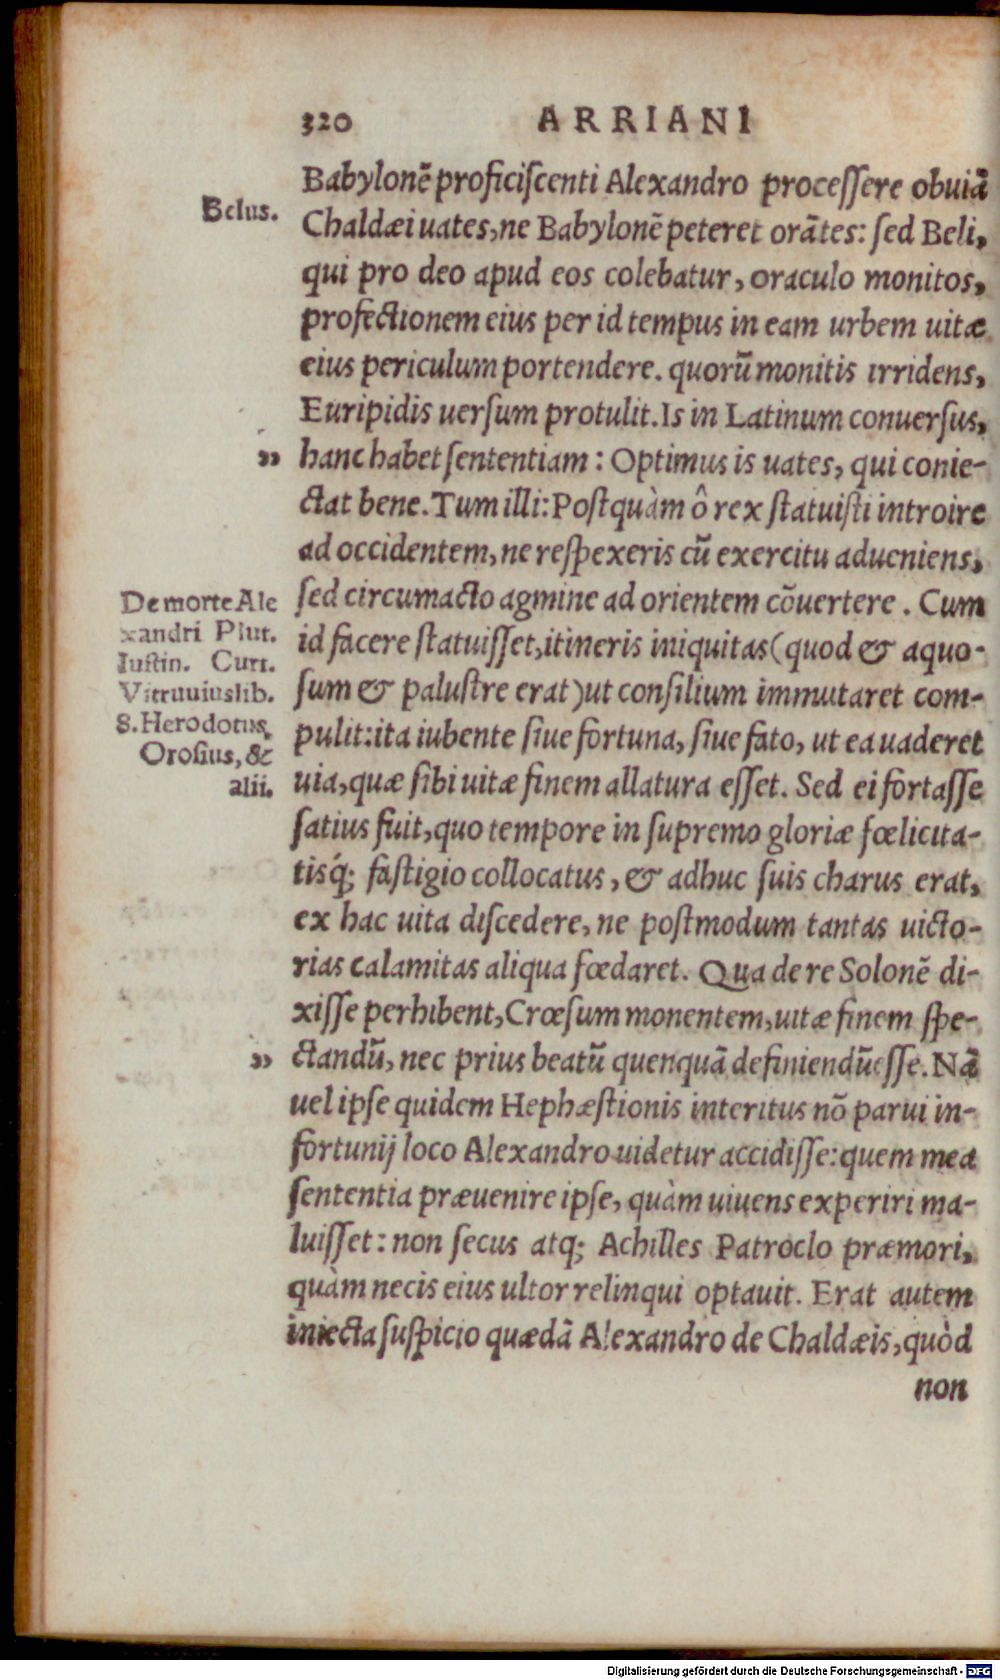 320 ARRIANI
Babylonẽ proficiſcenti Alexandro proceſſere obuiã
Belus.
Chaldæi uates, ne Babylonẽ peteret orãtes: ſed Beli,
qui pro deo apud eos colebatur, oraculo monitos,
profectionem eius per id tempus in eam urbem uitæ
eius periculum portendere. quorũ monitis irridens,
Euripidis uerſum protulit. Is in Latinum conuerſus,
„ hanc habet ſententiam: Optimus is uates, qui conie-
ctat bene. Tum illi: Poſtquàm ô rex ſtatuiſti introire
ad occidentem, ne reſpexeris cũ exercitu adueniens,
ſed circumacto agmine ad orientem cõuertere. Cum
id facere ſtatuiſſet, itineris iniquitas (quod & aquo-
ſum & paluſtre erat) ut conſilium immutaret com-
pulit: ita iubente ſiue fortuna, ſiue fato, ut ea uaderet
uia, quæ ſibi uitæ finem allatura eſſet. Sed ei fortaſſe
De morte Ale
xandri Plut.
Iuſtin. Curt.
Vitruuius lib.
8. Herodotus,
Oroſius, &
alii.
ſatius fuit, quo tempore in ſupremo gloriæ fœlicita-
tisq́; faſtigio collocatus, & adhuc ſuis charus erat,
ex hac uita diſcedere, ne poſtmodum tantas uicto-
rias calamitas aliqua fœdaret. Qua de re Solonẽ di-
xiſſe perhibent, Crœſum monentem, uitæ finem ſpe-
„ ctandũ, nec prius beatũ quenquã definiendũ eſſe. Nã
uel ipſe quidem Hephæſtionis interitus nõ parui in-
fortunij loco Alexandro uidetur accidiſſe: quem mea
ſententia præuenire ipſe, quàm uiuens experiri ma-
luiſſet: non ſecus atq; Achilles Patroclo præmori,
quàm necis eius ultor relinqui optauit. Erat autem
iniecta ſuſpicio quædã Alexandro de Chaldæis, quòd
non
Digitalisierung gefördert durch die Deutsche Forschungsgemeinschaft - DFG